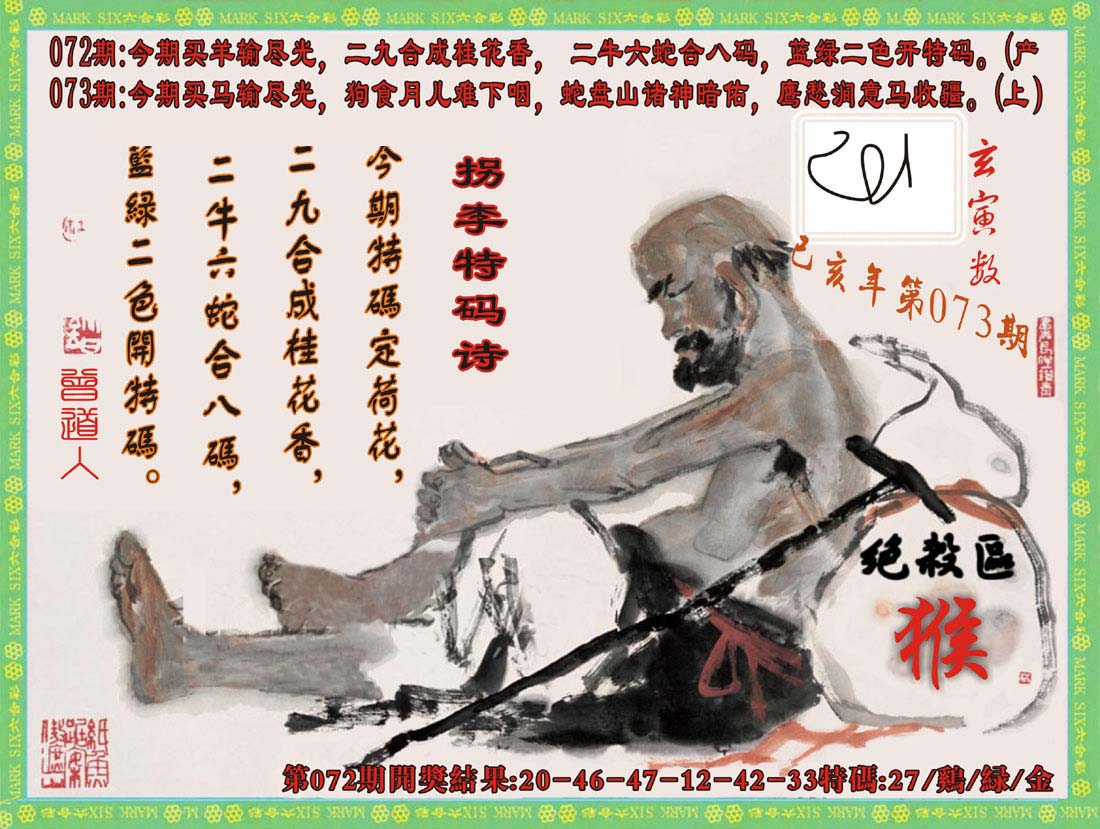 MARK SIX六合彩
072期:今期买羊输尽光，二九合成桂花香，二牛六蛇合八码，蓝绿二色开特码。(产
073期:今期买马输尽光，狗食月儿难下咽，蛇盘山诸神暗佑，鹰愁涧意马收疆。(上)
玄寅数
己亥年第073期
拐李特码诗
今期特碼定荷花，
二九合成桂花香，
二牛六蛇合八碼，
藍綠二色開特碼。
曾道人
绝殺區
猴
第072期開獎結果:20-46-47-12-42-33特碼:27/鷄/緑/金